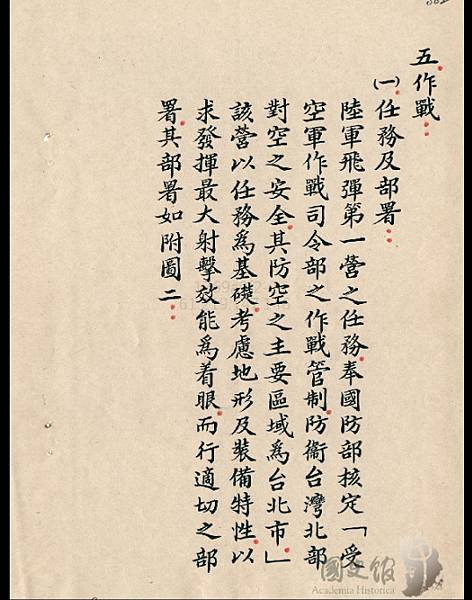 五作戰：
㈠任務及部署：
陸軍飛彈第一營之任務奉國防部核定「受
空軍作戰司令部之作戰管制防衛台灣北部
對空之安全其防空之主要區域為台北市」
該營以任務為基礎考慮地形及裝備特性以
求發揮最大射擊效能為着眼而行適切之部
署其部署如附圖二
國史館
Academia Historica